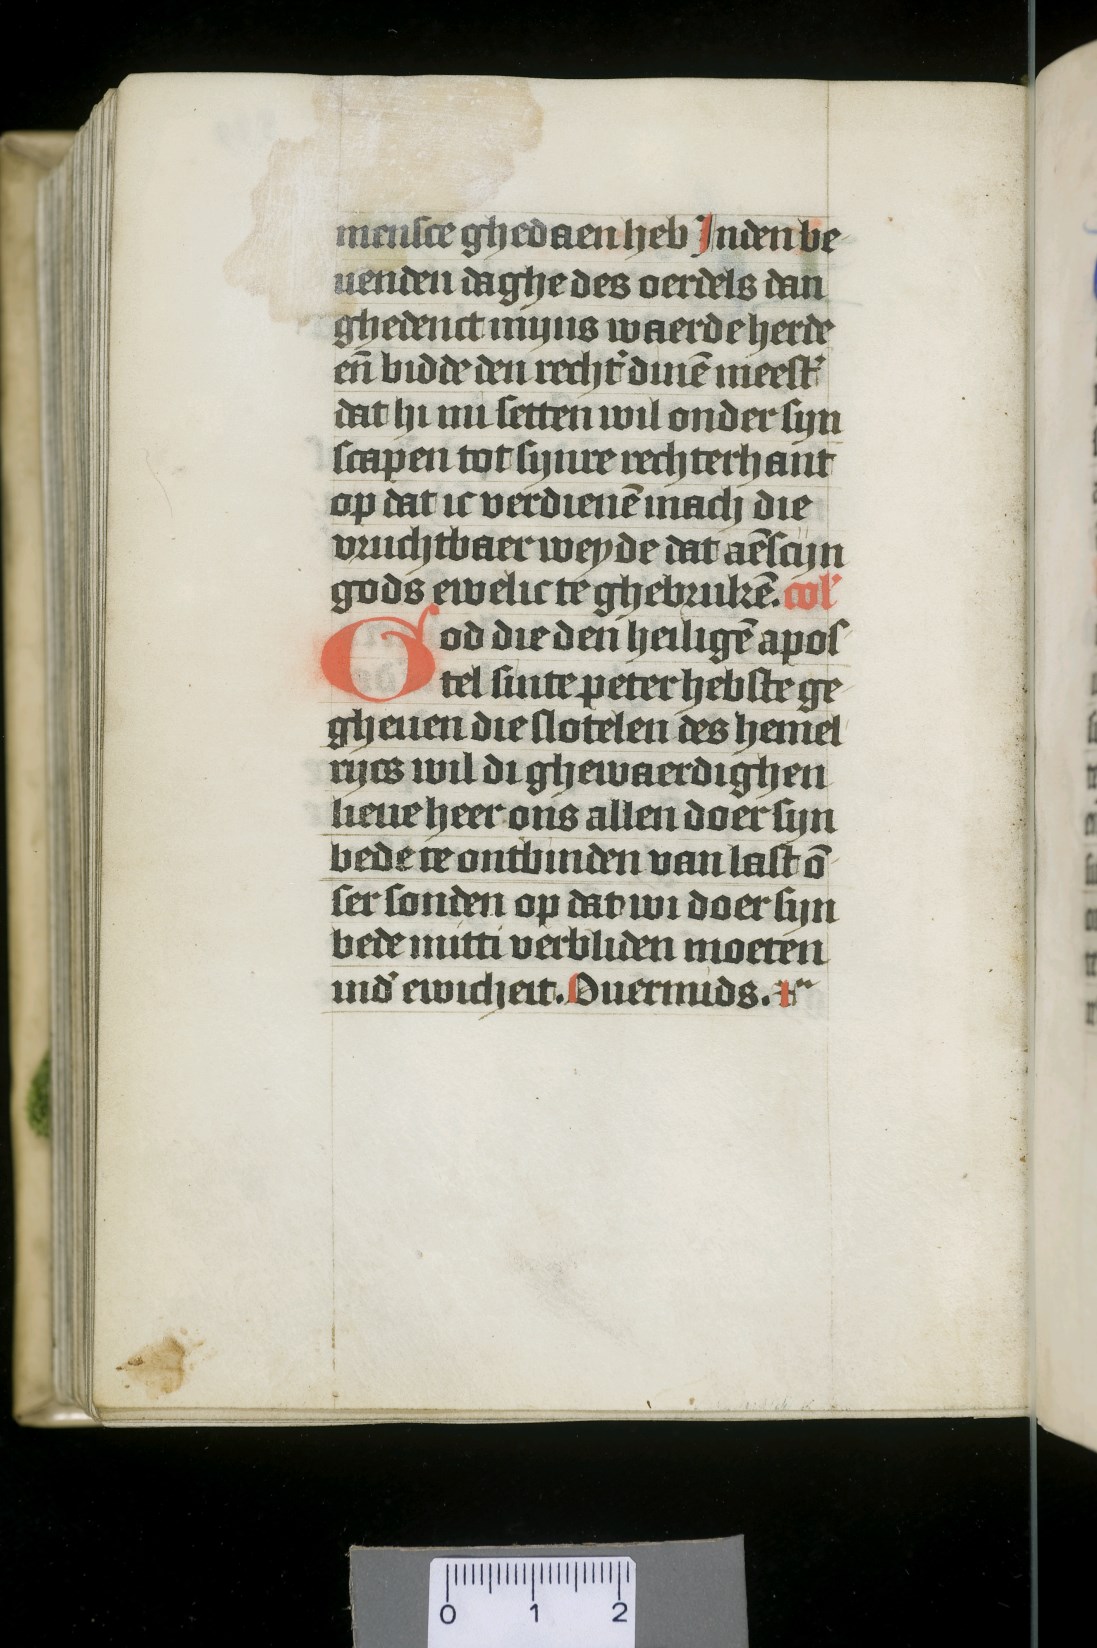 mensce ghedaen heb Inden be
uenden daghe des oerdels dan
ghedenct mijns waerde herde
eñ bidde den recht'dinē meest'
dat hi mi setten wil onder sijn
scapen tot sijnre rechterhant
op dat ic verdienē mach die
vruchtbaer weyde dat aēscijn
gods ewelic te ghebrukē. col'
God die den heiligē apos
tel sinte peter hebste ge
gheuen die slotelen des hemel
rijcs wil di ghewaerdighen
lieue heer ons allen doer sijn
bede te ontbinden van last ō
ser sonden op dat wi doer sijn
bede mitti verbliden moeten
ind' ewicheit. Ouermids.
0 1 2